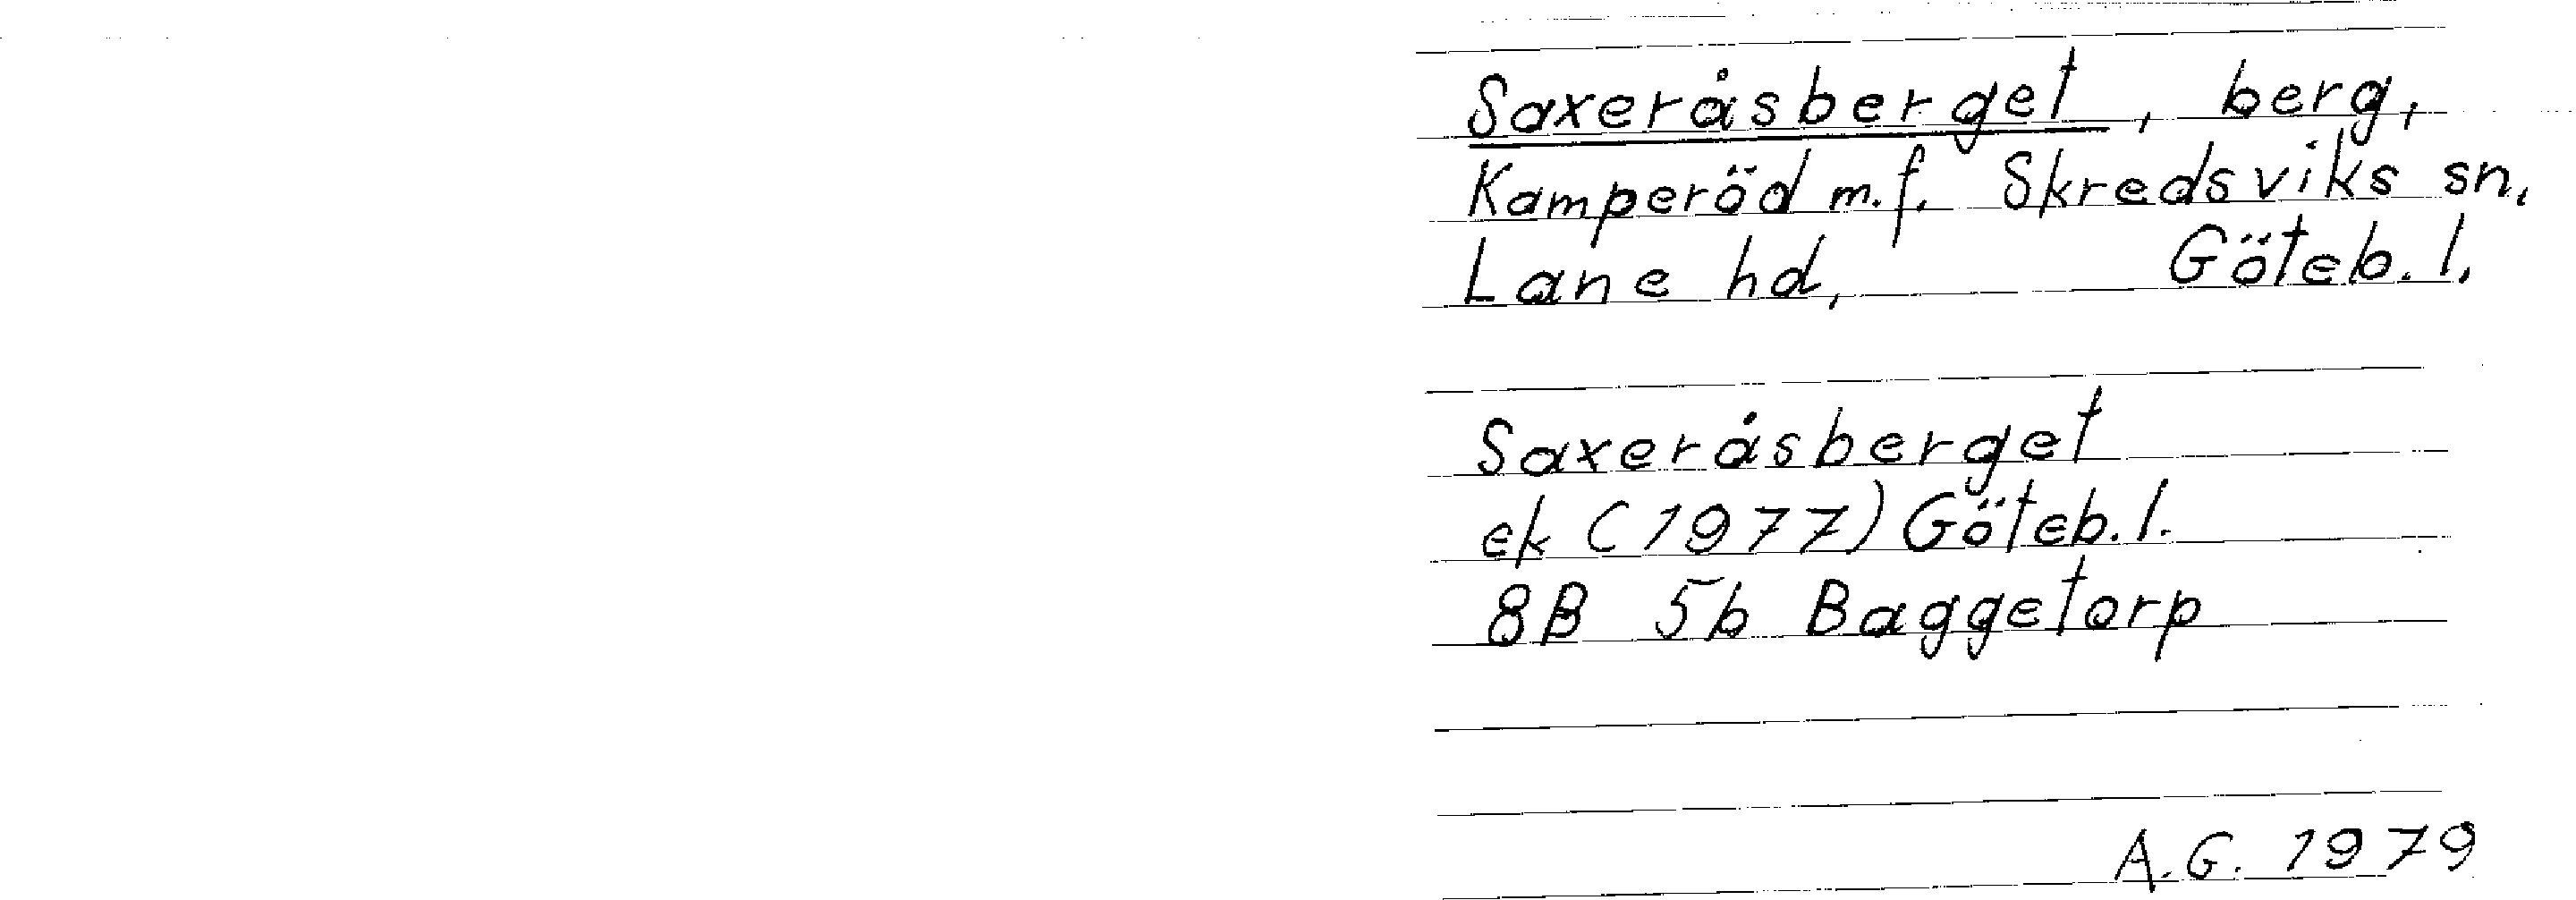 Saxeråsberget, berg,
Kamperöd m.f. Skredsviks sn,
Lane hd, Göteb. l.
Saxeråsberget
ek (1977) Göteb. l.
8B 5b Baggetorp
A.G. 1979